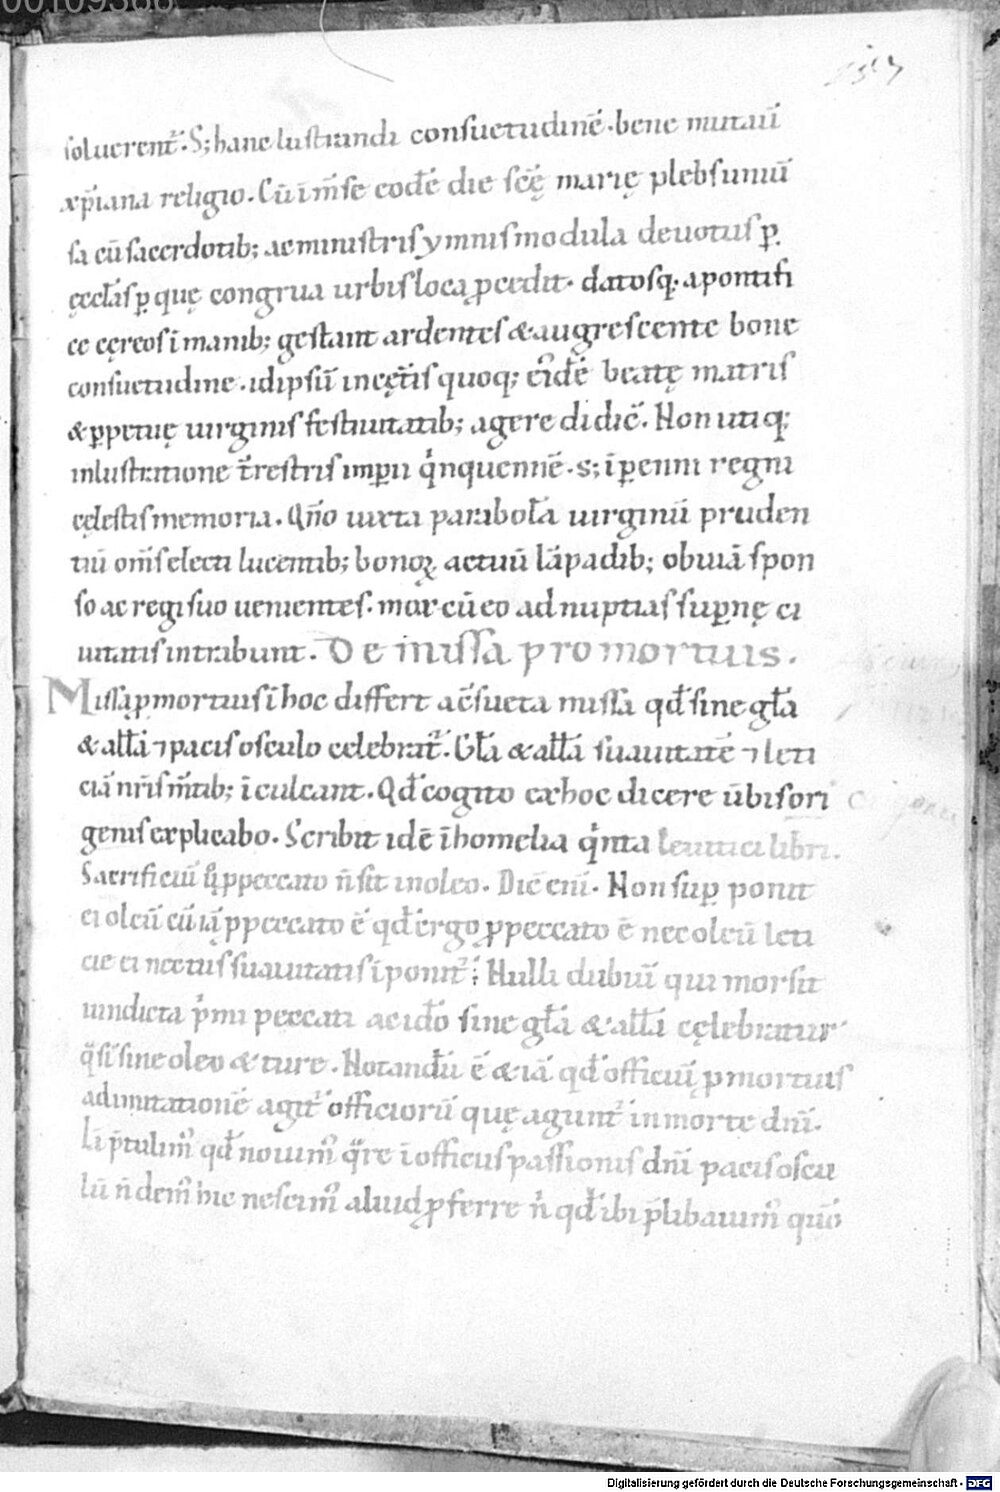 00109388
157
soluerent᷑. S; hanc lustrandi consuetudinē. bene mutauī
xp̄iana religio. Cū īm̄se eodē die scę̄ marię plebs uniū
sa cū sacerdotib; ac ministris ymnis modula deuotus ꝑ
ęccl̄as ꝑ quę congrua urbis loca ꝓcedit. datosq. a pontifi
ce cęreos ī manib; gestant ardentes & augrescente bone
consuetudine. idipsū in cęt̄is quoq; ei᷒dē beatę matris
& ꝑpetuę uirginis festiuitatib; agere didic̄. Non utiq;
inlustratione t̄restris imꝑii qͥnquennē. s; ī ꝑenni regni
cęlestis memoria. Qn̄o iuxta parabol̄a uirginū pruden
tiū om̄s electi lucentib; bonoꝝ actuū lāpadib; obuiā spon
so ac regi suo uenientes. mox cū eo ad nuptias suꝑnę ci
uitatis intrabunt. De missa pro mortuis.
Missa ꝓ mortuis ī hoc differt ac̄sueta missa qd̄ sine gl̄a
& all̄a ⁊ pacis osculo celebrat᷑. Gl̄a & all̄a suauitatē ⁊ leti
ciā nr̄is m̄tib; īculcant. Qd̄ cogito ex hoc dicere ūbis ori
genis explicabo. Scribit idē ī homelia qͥnta leuitici libri.
Sacrificiū qͩ ꝓ peccato n̄ sit in oleo. Dic̄ enī. Non suꝑ ponit
ei oleū cū iā ꝓ peccato ē qd̄ ergo ꝓ peccato ē nec oleū leti
cie ei nec tus suauitatis īponit᷑. Nulli dubiū qui mors sit
uindicta pͥmi peccati ac id̄o sine gl̄a & all̄a cęlebratur
q̄si sine oleo & ture. Notandū ē & iā qd̄ officiū ꝓ mortuis
ad imitationē agit᷑ officiorū quę agunt᷑ in morte dn̄i.
Li p̄tulim᷒ qd̄ nouim᷒ qͣre ī officiis passionis dn̄i pacis oscu
lū n̄ dem᷒ hic nescim᷒ aliud ꝓferre nͥ qd̄ ibi p̄libauim᷒ quō
Digitalisierung gefördert durch die Deutsche Forschungsgemeinschaft - DFG